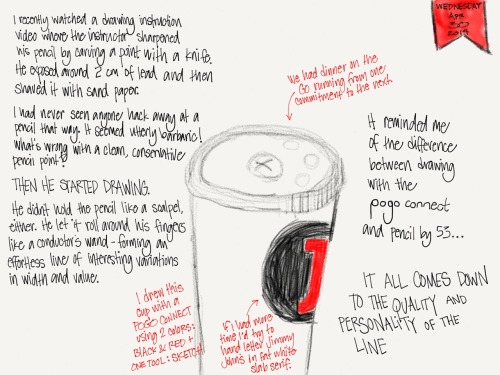 I recently watched a drawing instruction
video where the instructor sharpened
his pencil by carving a point with a knife.
He exposed around 2 cm of lead and then
shaved it with sand paper.
I had never seen anyone hack away at a
pencil that way. It seemed utterly barbaric!
What's wrong with a clean, conservative
pencil point?
THEN HE STARTED DRAWING.
He didn't hold the pencil like a scalpel,
either. He let it roll around his fingers
like a conductor's wand - forming an
effortless line of interesting variations
in width and value.
I drew this
cup with a
POGO CONNECT
using 2 colors:
BLACK & RED +
ONE TOOL: SKETCH!
If I had more
time I'd try to
hand letter Jimmy
John's in fat white
slab serif.
We had dinner on the
GO running from one
commitment to the next.
J
WEDNESDAY
APR
2013
It reminded me
of the difference
between drawing
with the
pogo connect
and pencil by 53...
IT ALL COMES DOWN
TO THE QUALITY AND
PERSONALITY OF THE
LINE